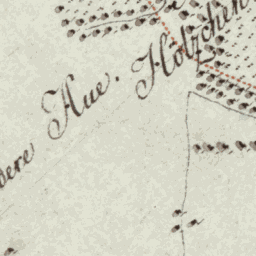 dere Aue.
Hölzchen